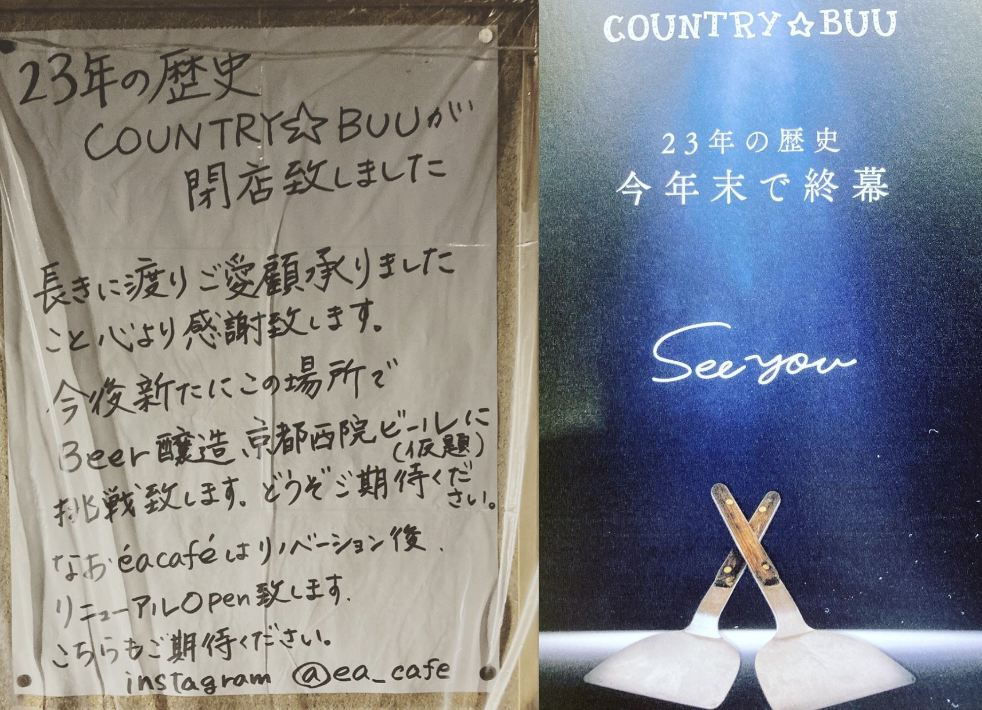 23年の歴史
COUNTRY☆BUUが
閉店致しました
長きに渡りご愛顧承りました
こと心より感謝致します。
今後新たにこの場所で
Beer醸造、京都西院ビールに
(仮題)
挑戦致します。どうぞご期待くだ
さい。
なおéacaféはリノベーション後、
リニューアルOpen致します。
こちらもご期待ください。
instagram @ea_cafe
COUNTRY☆BUU
23年の歴史
今年末で終幕
See you